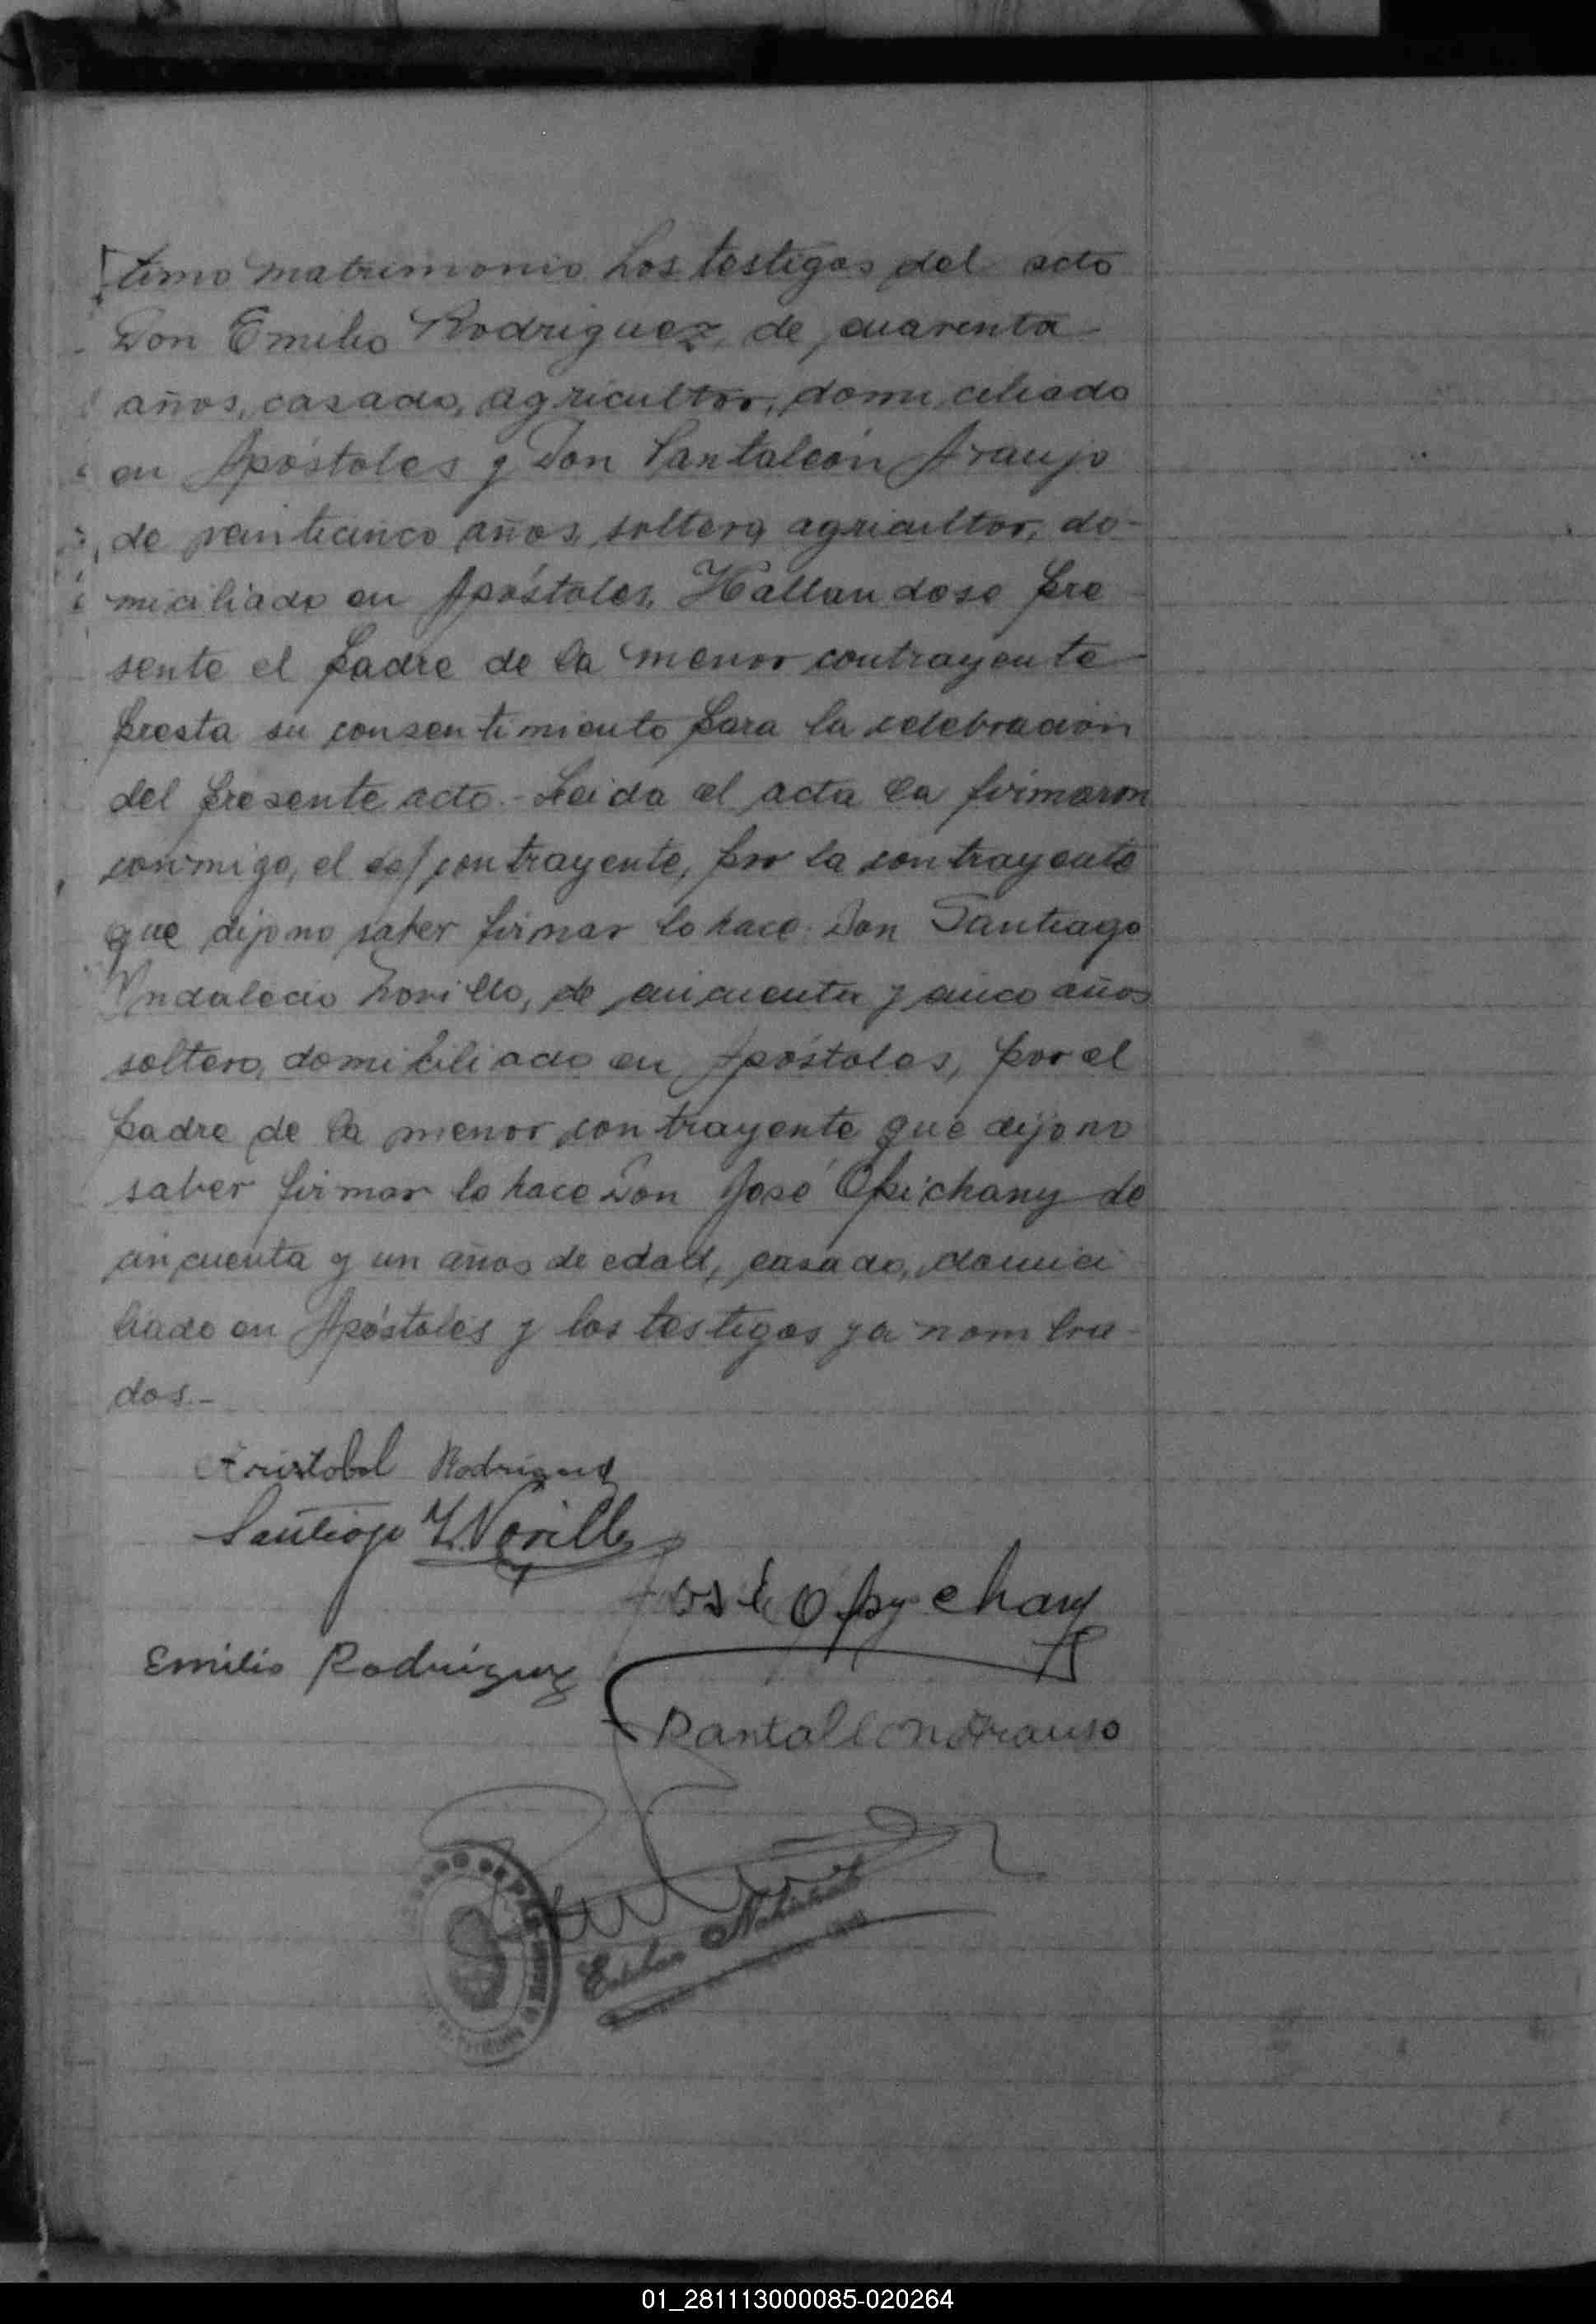 timo matrimonio. Los testigos del acto
Don Emilio Rodriguez, de cuarenta
años, casado, agricultor, domiciliado
en Apóstoles y Don Pantaleón Araujo
de veinticinco años, soltero, agricultor, do-
miciliado en Apóstoles. Hallandose pre
sente el padre de la menor contrayente
presta su consentimiento para la celebración
del presente acto.- Leida el acta la firmaron
conmigo, el contrayente, por la contrayente
que dijo no saber firmar lo hace Don Santiago
Yndalecio Novillo, de cincuenta y cinco años
soltero, domiciliado en Apóstoles, por el
padre de la menor contrayente que dijo no
saber firmar lo hace Don José Opichany de
cincuenta y un años de edad, casado, domici
liado en Apóstoles y los testigos ya nombra-
dos.-
Cristobal Rodriguez
Santiago Y. Novillo
José Opychany
Emilio Rodriguez
Pantaleon Araujo
Esteban
01_281113000085-020264